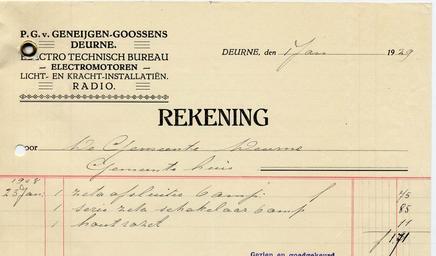 P. G. v. GENEIJGEN-GOOSSENS
DEURNE.
ELECTRO TECHNISCH BUREAU
— ELECTROMOTOREN —
LICHT- EN KRACHT-INSTALLATIËN.
RADIO.
DEURNE, den 1 Jan 1929
REKENING
voor De Gemeente Deurne
Gemeente huis
1928
25 Jan. 1 zeta afsluiter 6 amp: f 75
1 serie zeta schakelaar 6 amp 85
1 hout rozet 11
1,71
Gezien en goedgekeurd